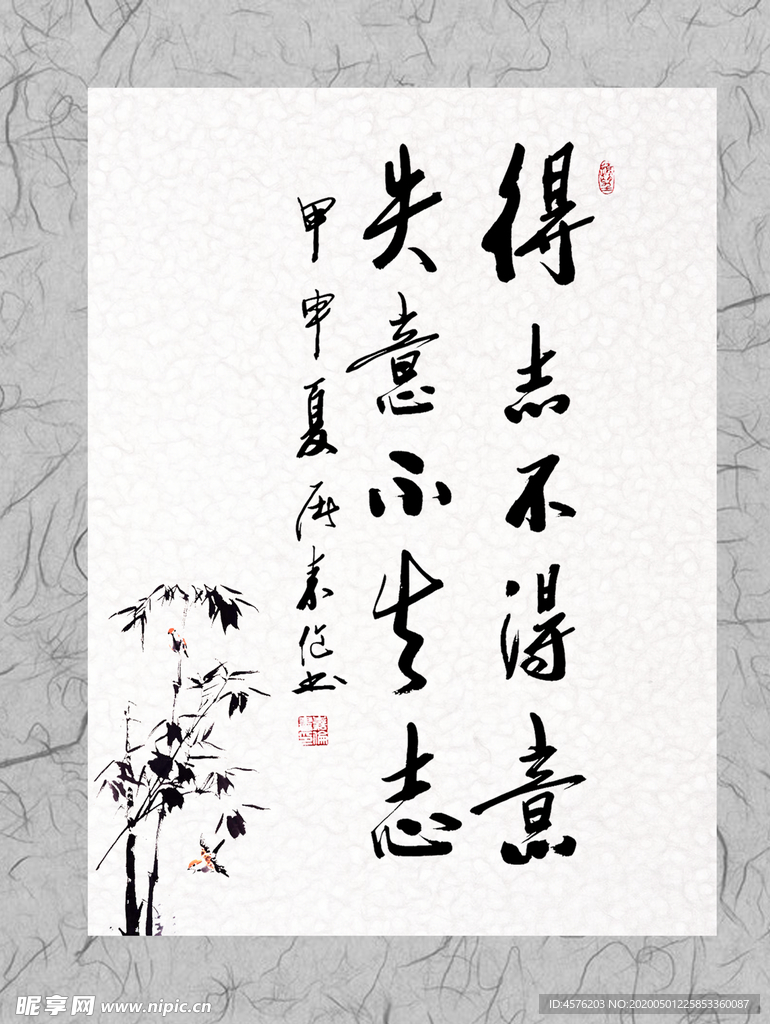 得志不得意
失意不失志
甲申夏 唐素伦书
昵享网 www.nipic.cn
ID:4576203 NO:20200501225853360087